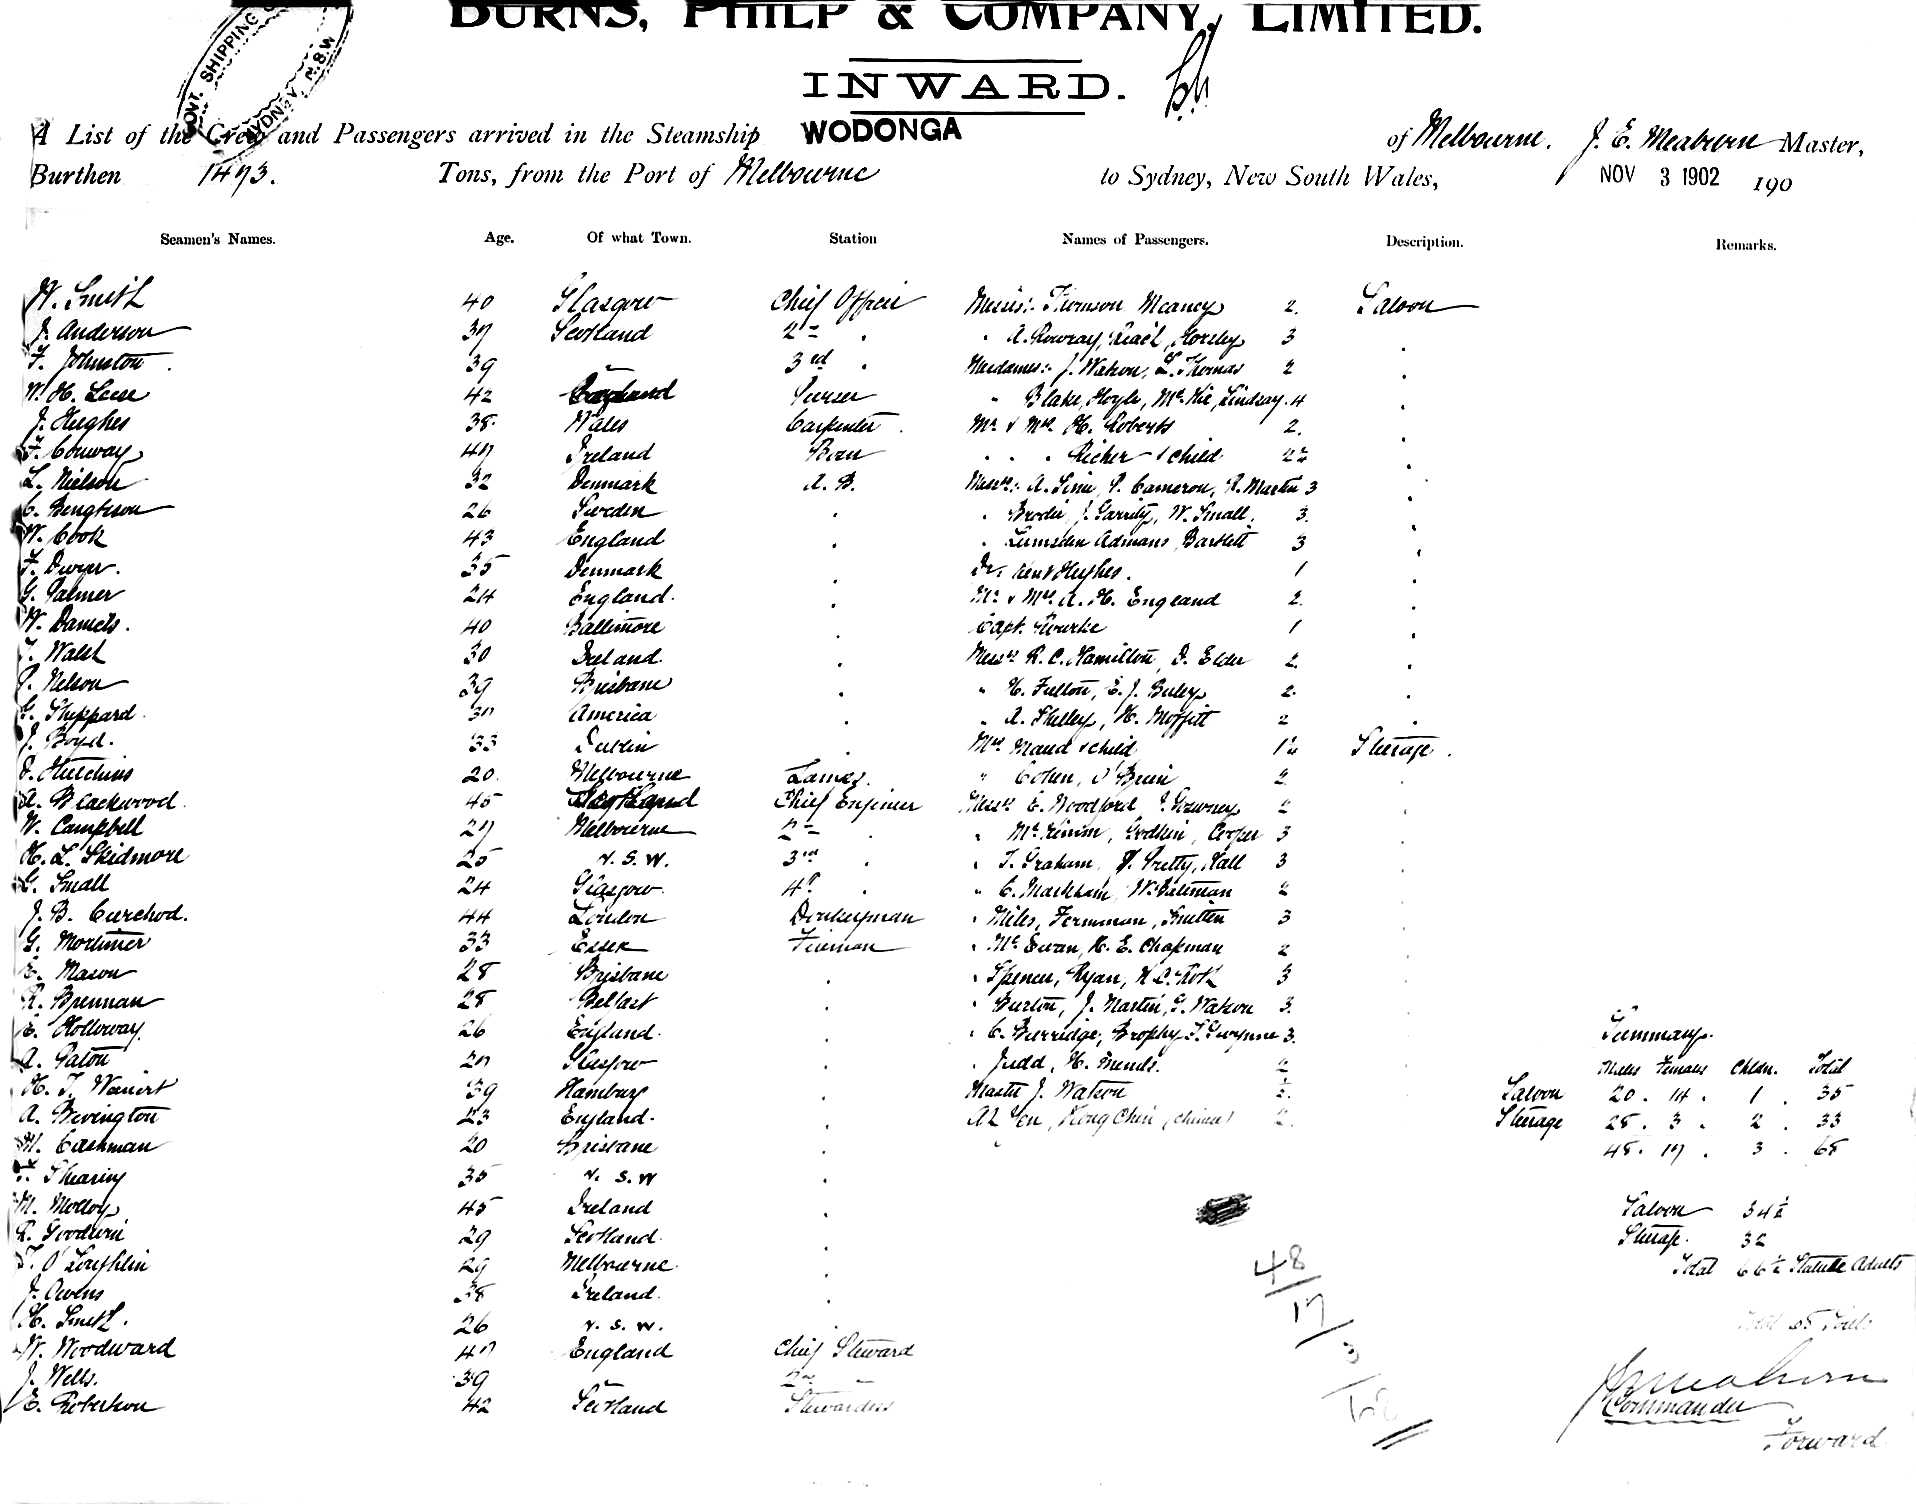 BURNS, PHILP & COMPANY, LIMITED.
GOVT. SHIPPING
SYDNEY N.S.W
INWARD.
A List of the Crew and Passengers arrived in the Steamship WODONGA of Melbourne. J. E. Meaburn Master,
Burthen 1473. Tons, from the Port of Melbourne to Sydney, New South Wales, NOV 3 1902 190
Seamen's Names. Age. Of what Town. Station Names of Passengers. Description. Remarks.
W. Smith 40 Glasgow Chief Officer Messrs:- Thomson Meaney 2. Saloon
J. Anderson 37 Scotland 2nd " A. 3
F. Johnston 39 " 3rd Mesdames:- J. Watson, L. Thomas 2
W. H. Leese 42 England Purser " Blake, Hoyle, McKie, Lindsay. 4
J. Hughes 38. Wales Carpenter Mr & Mrs H. Roberts 2.
F. Conway 47 Ireland Bosn " " " Richer & child 2½
L. Nielson 32 Denmark A. B. Messrs:- A. Sim, P. Cameron, R. Martin 3
C. Bengtsson 26 Sweden " Brodie, J. Garrity, W. Small. 3.
W. Cook 43 England " Lumsden Admans, Bartlett 3
F. Dwyer. 35 Denmark Dr. Kent Hughes. 1
G. Palmer 24 England. Mr & Mrs A. H. England 2.
W. Daniels. 40 Baltimore Capt. Rourke 1
T. Walsh 30 Ireland. Messrs R. C. Hamilton, D. Elder 2.
P. Nelson 39 Brisbane " H. Fulton, E. J. Buley 2.
G. Sheppard. 37 America " A. Shelley, H. Moffitt 2
J. Boyd. 33 Dublin Mrs Maud & child 1½ Steerage.
D. Hutchins 20. Melbourne Lamps. " Cohen, O'Brien 2
A. Blackwood. 45 Scotland Chief Engineer Messrs E. Woodford 2
W. Campbell 27 Melbourne 2nd " Godkin, Cooper 3
H. L. Skidmore 25 N. S. W. 3rd " T. Graham, Pretty, Hall 3
G. Small 24 Glasgow. 4th " C. Markham, W. Bateman 2
J. B. Curchod. 44 London Donkeyman " Miles, 3
G. Mortimer 33 Essex Fireman " McEwan, H. E. Chapman 2
Mason 28 Brisbane " Spencer, Ryan, 3
R. Brennan 28 Belfast " Burton, J. Martin, G. Watson 3.
E. Holloway. 26 England. " C. Burridge, Brophy, T. Gwynne 3. Summary.
A. Paton 27 Glasgow " Judd, H. 2 Males Females Chldn. Total
H. T. 39 Hamburg Master J. Watson ½. Saloon 20. 14. 1. 35
A. Bevington 23 England. Ah Yen, Hong Chin (Chinese) 2. Steerage 28. 3. 2. 33
M. Cashman 20 Brisbane 48. 17. 3. 68
T. Shearing 35 N. S. W
M. Molloy 45 Ireland Saloon 34½
R. Goodwin 29 Scotland. Steerage. 32
T. O'Loughlin 29 Melbourne. Total 66½ Statute Adults
J. Owens 38 Ireland.
H. Smith. 26 N. S. W. Total 68 Souls
W. Woodward 47 England Chief Steward
J. Wells. 39 " 2nd "
E. Robertson 42 Scotland Stewardess
48/17/3/68
J E Meaburn
Commander
Forward